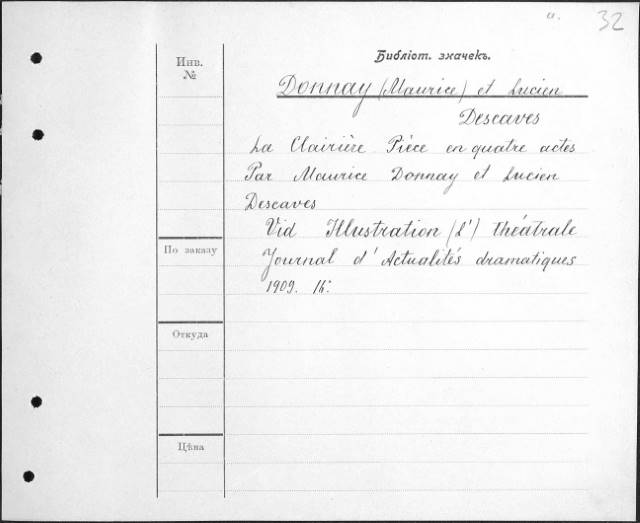 32
Библіот. значекъ.
Инв.
№
Donnay (Maurice) et Lucien
Descaves
La Clairière Pièce en quatre actes
Par Maurice Donnay et Lucien
Descaves
Vid Illustration (L') théâtrale
Journal d'Actualités dramatiques
1909.
По заказу
Откуда
Цѣна